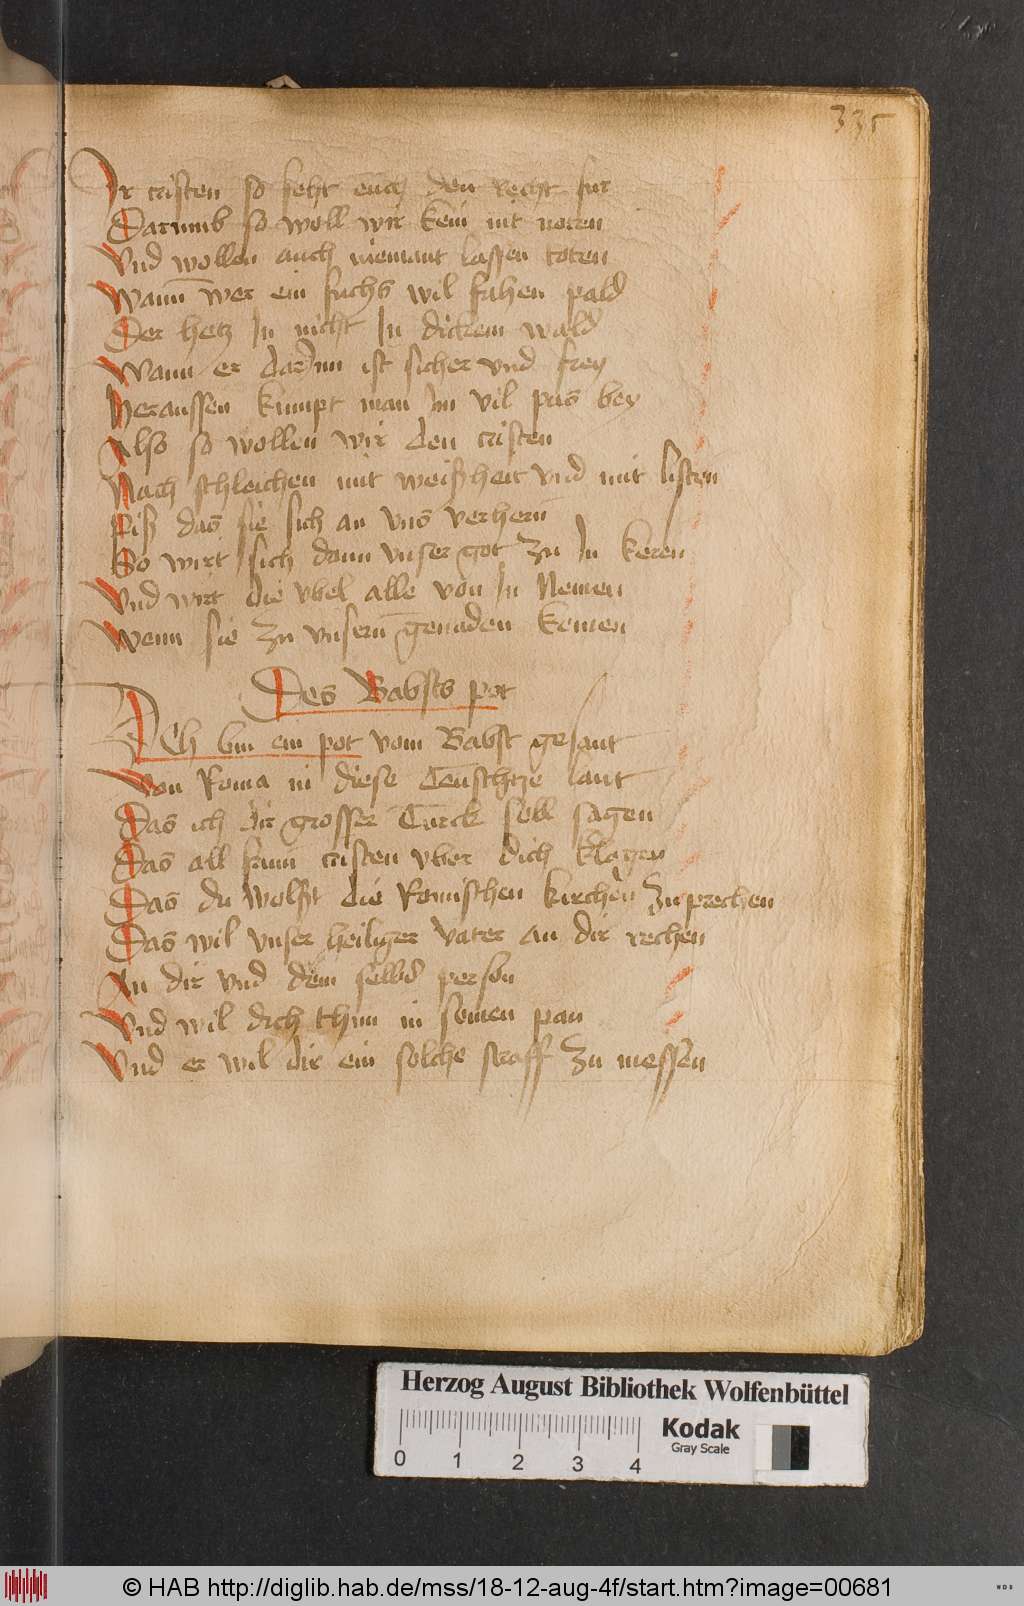 335
Ir cristen so seht euch den recht fur
Darumb so woll wir kein nit noten
Vnd wollen auch niemant lassen toten
Wann wer ein fuchs wil fahen pald
Der hetz In nicht In dickem wald
Wann er darinn ist sicher vnd frey
Heraussen kumpt man Im vil pas bey
Also so wollen wir den cristen
Nach schleichen mit weißheit vnd mit listen
Piß das sie sich an vns verhern
So wirt sich dann vnser got zu In keren
Vnd wirt die vbel alle von In Nemen
Wenn sie zu vnsern genaden kemen
Des Babsts pot
Ich bin ein pot vom Babst gesant
Von Roma in diese lant
Das ich dir grosser Turck soll sagen
Das all frum cristen vber dich klagen
Das du wolst die Romischen kirchen zusprechen
Das wil vnser heiliger vater an dir rechen
An dir vnd dein selbs person
Vnd wil dich thun in seinen pan
Vnd er wil dir ein solche straff zu messen
Herzog August Bibliothek Wolfenbüttel
Kodak
Gray Scale
0 1 2 3 4
© HAB http://diglib.hab.de/mss/18-12-aug-4f/start.htm?image=00681